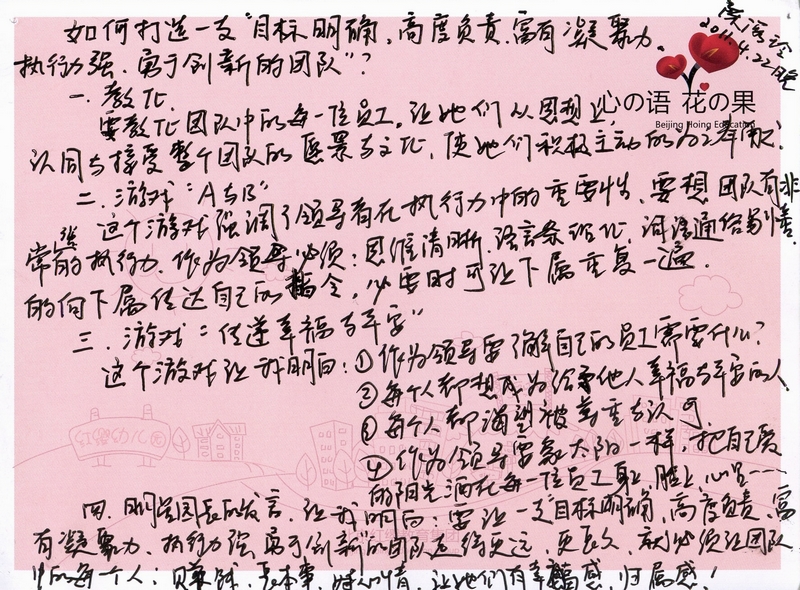 如何打造一支“目标明确,高度负责,富有凝聚力。
执行力强、勇于创新的团队”?
2011.4.22晚
心の语 花の果
Beijing Hoing Education
一、教化
要教化团队中的每一位员工。让她们从思想上
认同与接受整个团队的愿景与文化,使她们积极主动的为之奉献。
二、游戏“A与B”
这个游戏强调了领导者在执行力中的重要性,要想团队有非
常强的执行力,作为领导必须:思维清晰,语言条理化,词语通俗易懂
的向下属传达自己的指令,必要时可让下属重复一遍。
三、游戏“传递幸福与平安”
这个游戏让我明白:①作为领导要了解自己的员工需要什么?
②每个人都想成为给予他人幸福与平安的人
③每个人都渴望被尊重与认可
④作为领导要象太阳一样,把自己爱
的阳光洒在每一位员工身上,脸上,心里……
红缨幼儿园
四、园长的发言,让我明白:要让一支“目标明确,高度负责,富
有凝聚力,执行力强,勇于创新的团队走得更远,更长久,就必须让团队
中的每一个人:赚钱,长本事,让她们有幸福感,归属感!